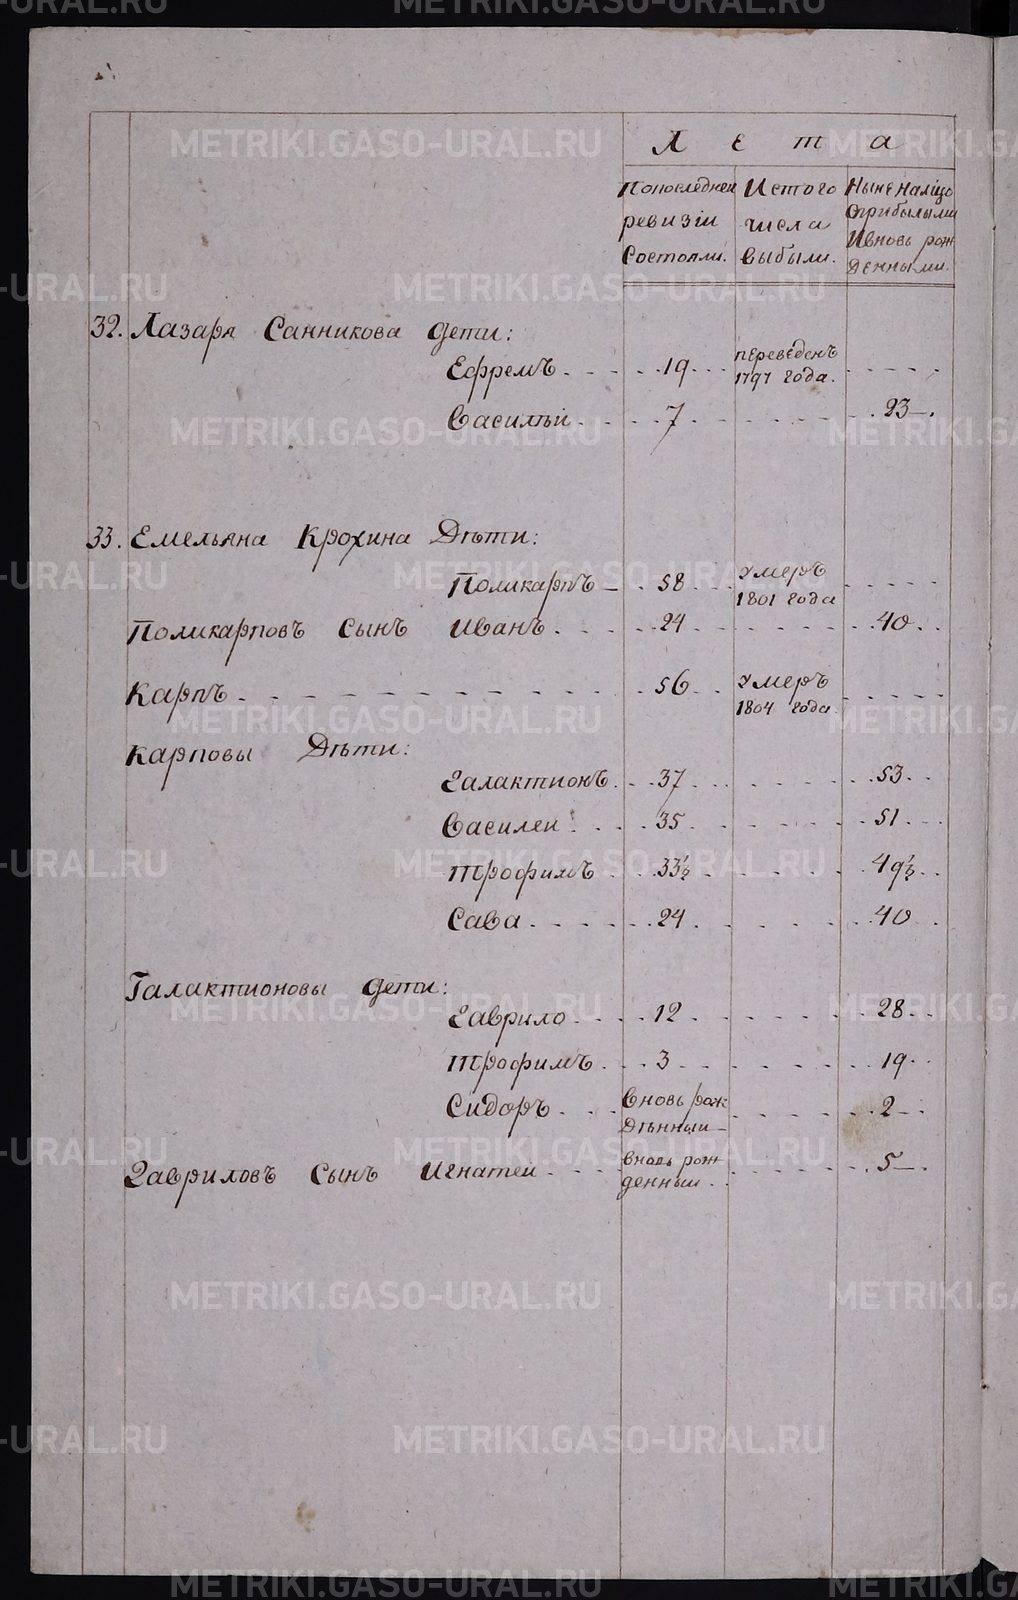 Лета
Попоследней ревизiи Состояли.
Истого числа выбыли.
Ныне налицо Сприбылыми Ивновь рожденными.
32. Лазаря Санникова дети:
Ефремъ 19 переведенъ 1797 года.
Василъи 7 23
33. Емельяна Крохина Дѣти:
Поликарпъ 58 умеръ 1801 года
Поликарповъ сынъ Иванъ 24 40
Карпъ 56 умеръ 1804 года
Карповы Дѣти:
Галактионъ 37 53
Василеи 35 51
Трофимъ 33½ 49½
Сава 24 40
Галактионовы дети:
Гаврило 12 28
Трофимъ 3 19
Сидоръ Вновь рождѣнныи 2
Гавриловъ Сынъ Игнатеи вновь рожденныи 5
METRIKI.GASO-URAL.RU